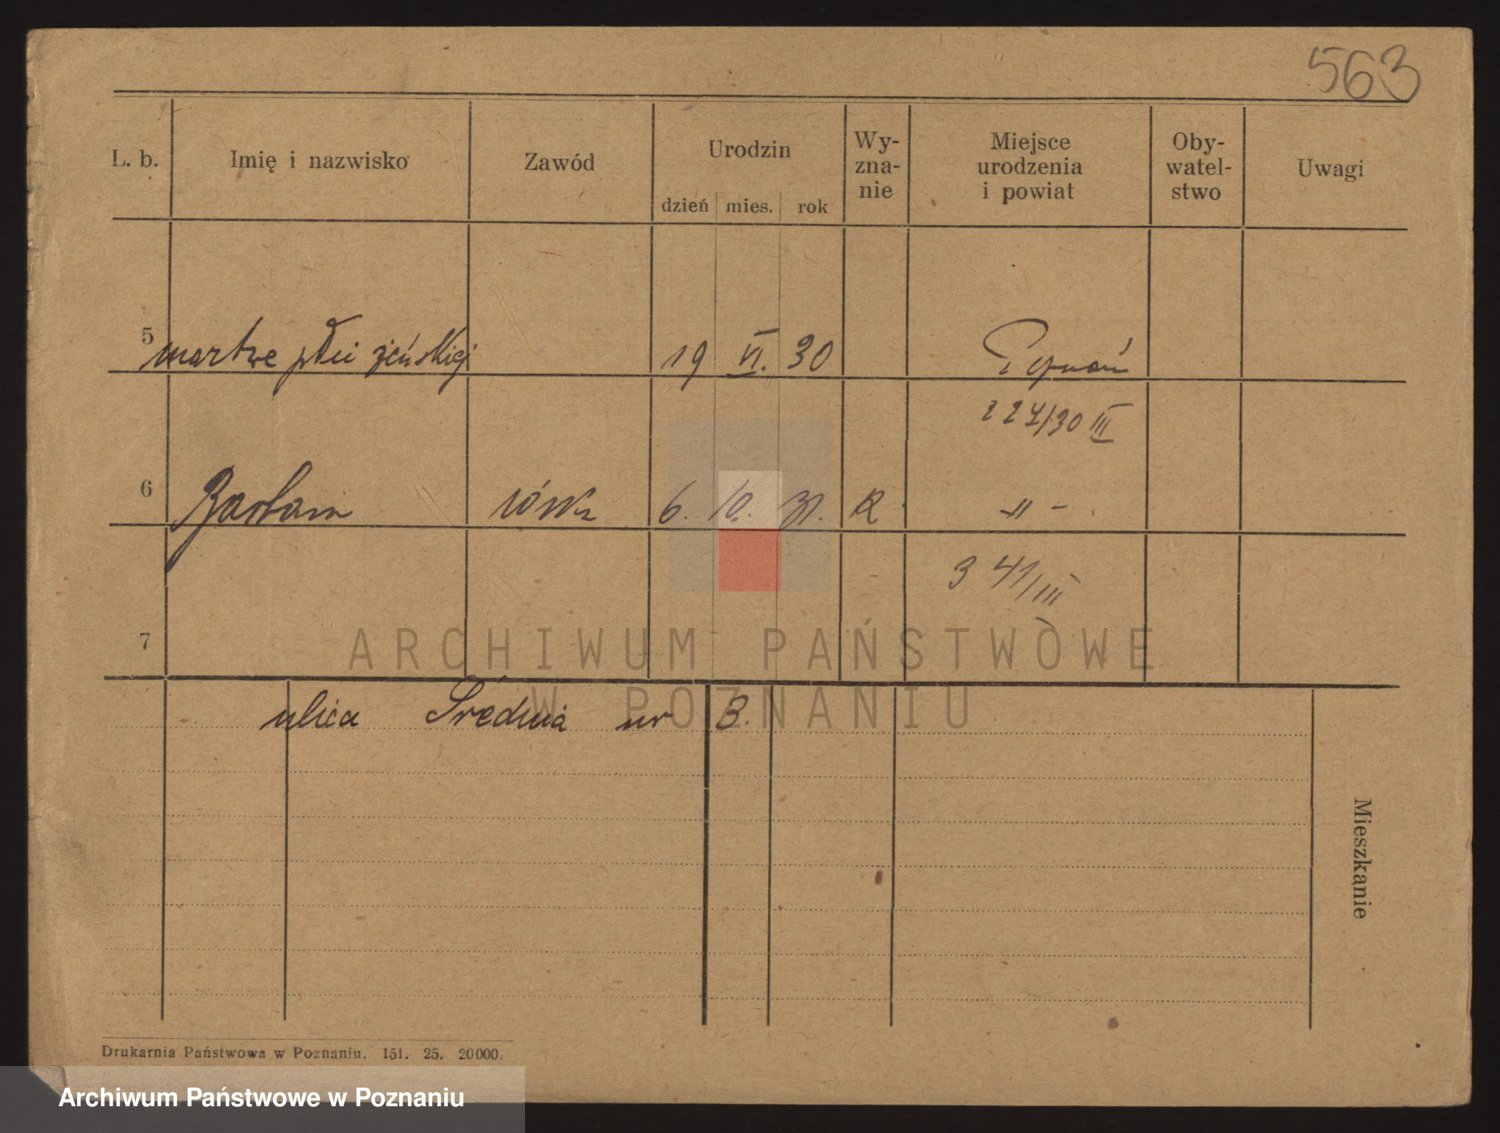 563
L. b. Imię i nazwisko Zawód Urodzin dzień mies. rok Wy-zna-nie Miejsce urodzenia i powiat Oby-watel-stwo Uwagi
5 martwe płci żeńskiej 19 VI. 30 Poznań
227/30 III
6 córka 6. 10. 31. R. -"-
341/III
7
ARCHIWUM PAŃSTWOWE
W POZNANIU
ulica Średnia nr 3.
Mieszkanie
Drukarnia Państwowa w Poznaniu. 151. 25. 20000.
Archiwum Państwowe w Poznaniu